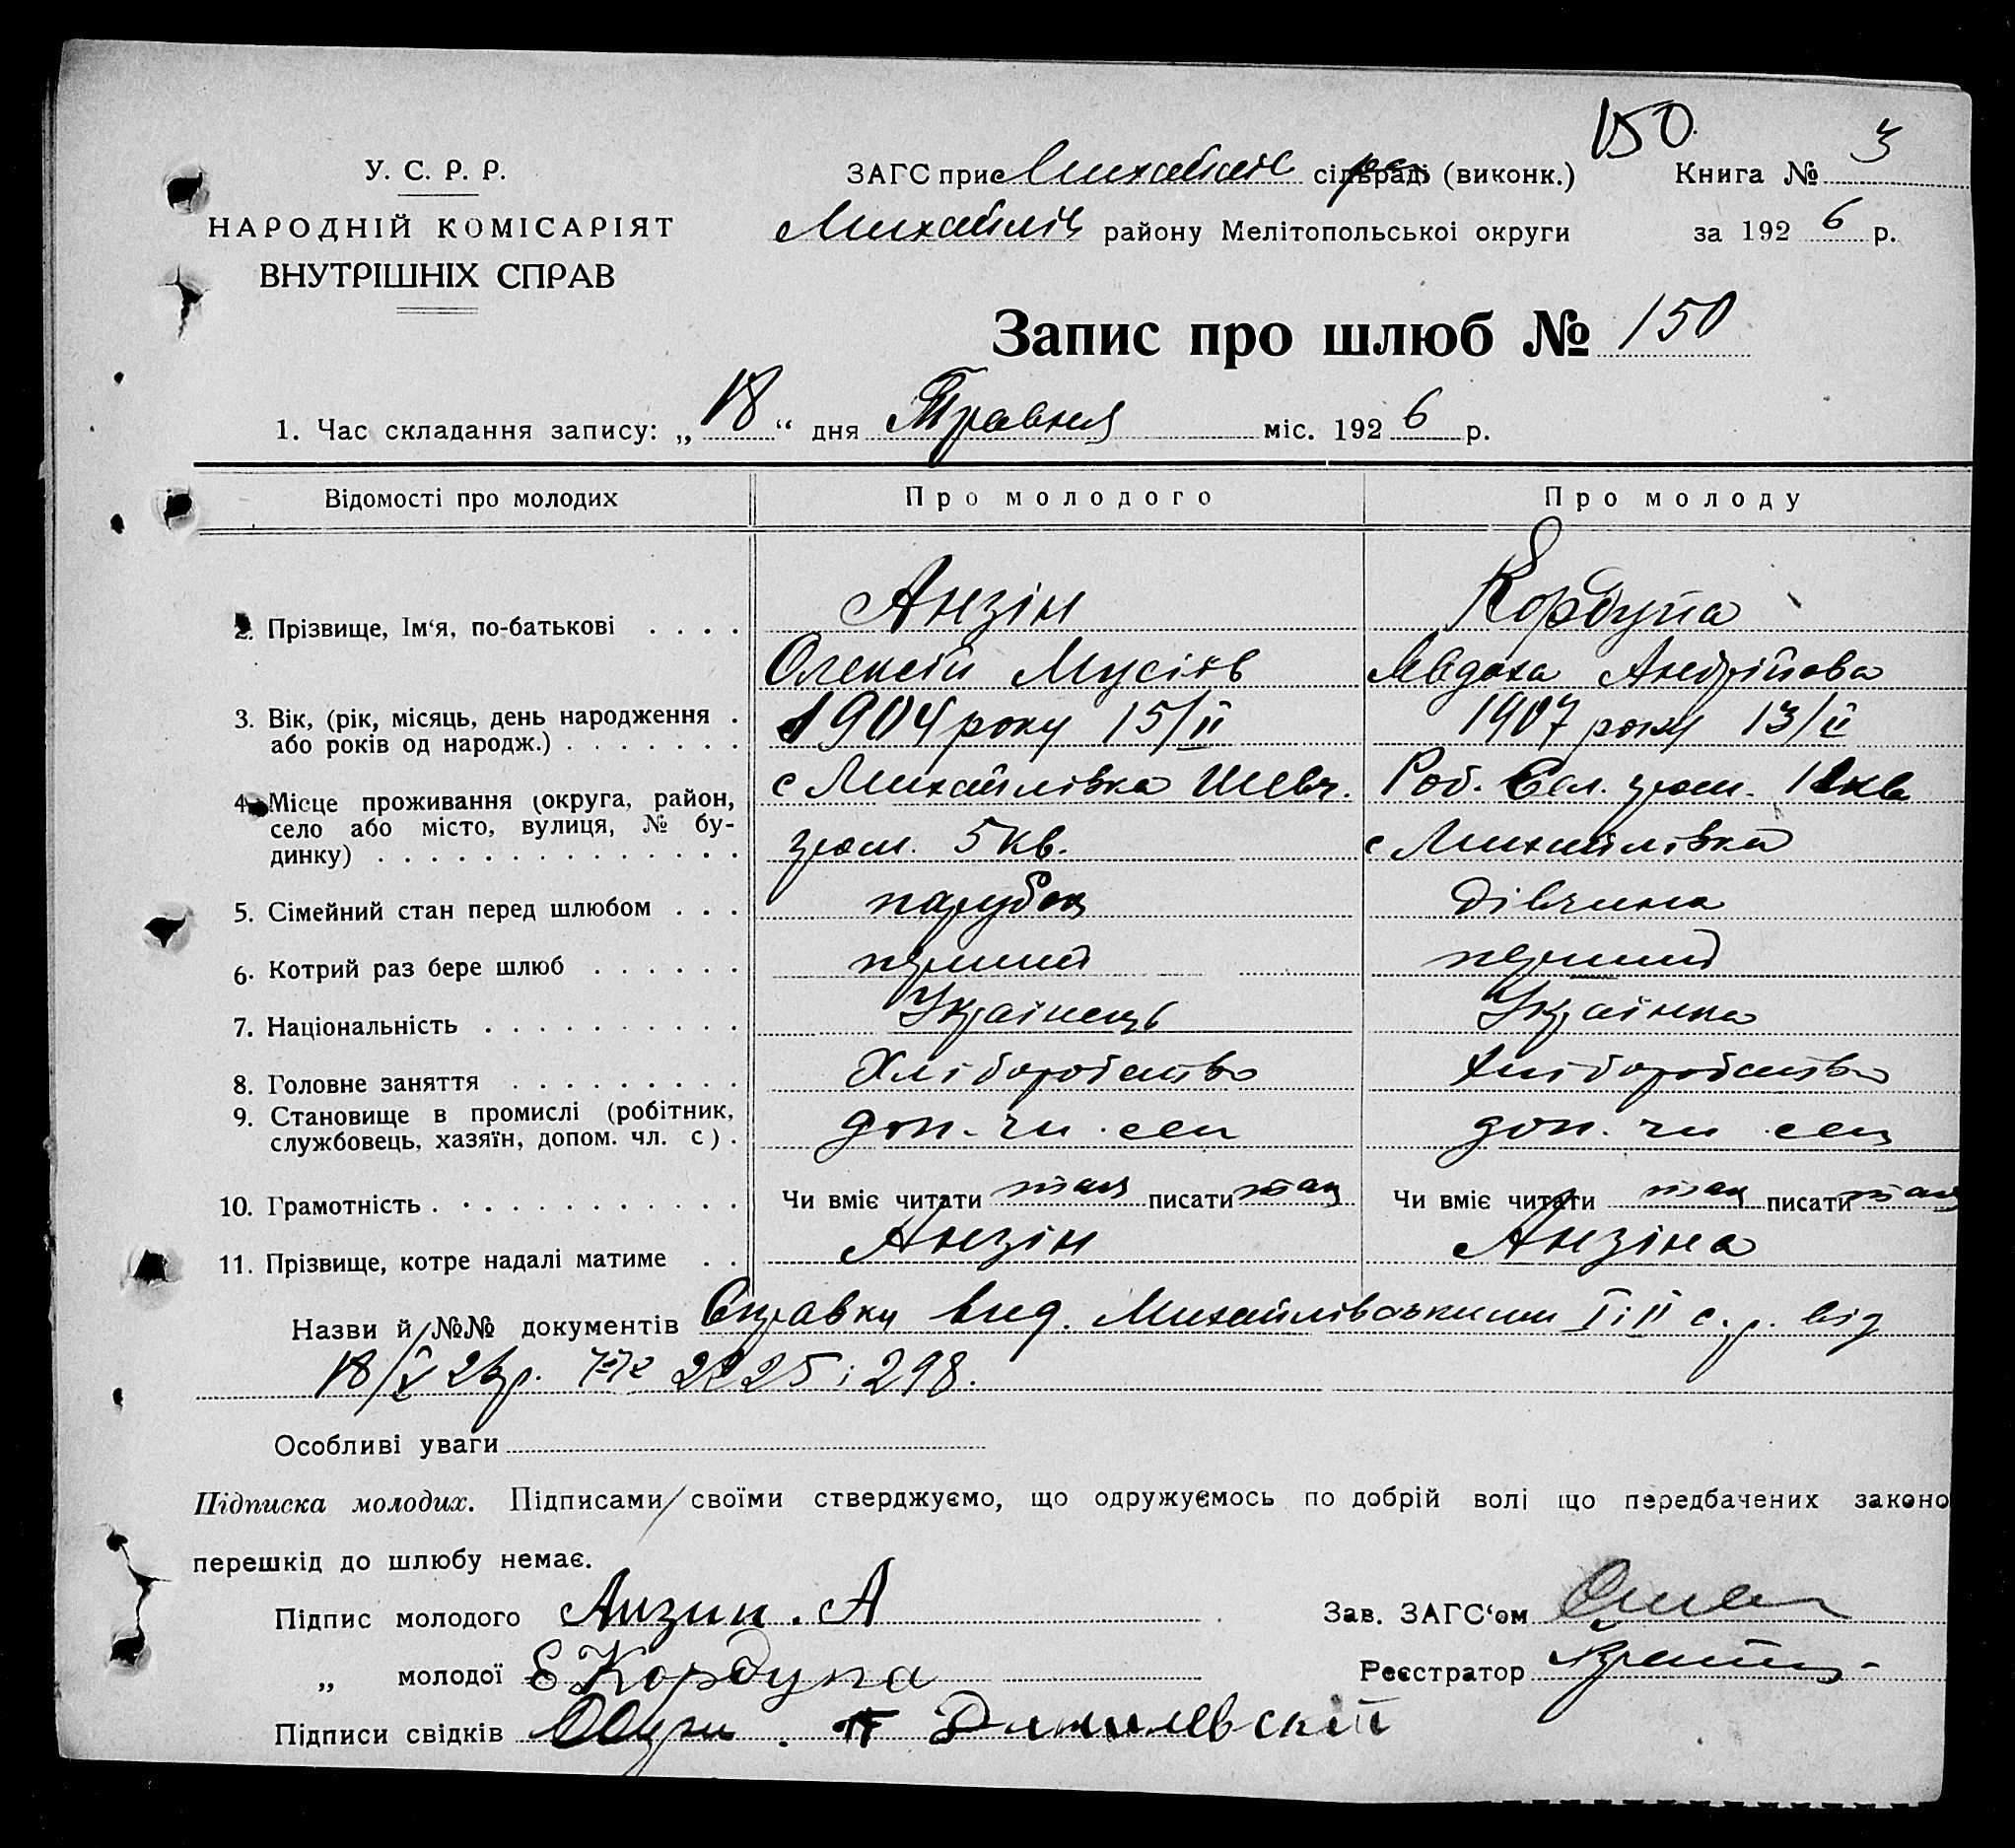 150
У. С. Р. Р.
ЗАГС при Михайлів сільраді (виконк.) Книга № 3
НАРОДНІЙ КОМІСАРІЯТ
Михайлів району Мелітопольскої округи за 1926 р.
ВНУТРІШНІХ СПРАВ
Запис про шлюб № 150
1. Час складання запису: „ 18 “ дня Травня міс. 1926 р.
Відомості про молодих Про молодого Про молоду
2. Прізвище, Ім‘я, по-батькові . . . . Анзін Кордупа
Олексій Мусіїв Явдоха Андрійова
3. Вік, (рік, місяць, день народження . 1904 року 15/II 1907 року 13/II
або років од народж.) . . . . . . .
4. Місце проживання (округа, район, с Михайлівка Шевч. Роб. Сел. гром. 12 кв
село або місто, вулиця, № бу-
динку) . . . . . . . . . . . . . . гром. 5 кв. с Михайлівка
5. Сімейний стан перед шлюбом . . . парубок дівчина
6. Котрий раз бере шлюб . . . . . . перший перший
7. Національність . . . . . . . . . . Українець Українка
8. Головне заняття . . . . . . . . . Хліборобство Хліборобство
9. Становище в промислі (робітник,
службовець, хазяїн, допом. чл. с) . доп. чл. сем доп. чл. сем
10. Грамотність . . . . . . . . . . . . Чи вміє читати так писати так Чи вміє читати так писати так
11. Прізвище, котре надалі матиме . . Анзін Анзіна
Назви й №№ документів Справки вид. Михайлівськими I і II с.р. від
18/V 26 р. №№ 2225 і 298.
Особливі уваги
Підписка молодих. Підписами своїми стверджуємо, що одружуємось по добрій волі що передбачених законо
перешкід до шлюбу немає.
Підпис молодого Анзин. А Зав. ЗАГС‘ом
„ молодої Е Кордупа Реєстратор
Підписи свідків